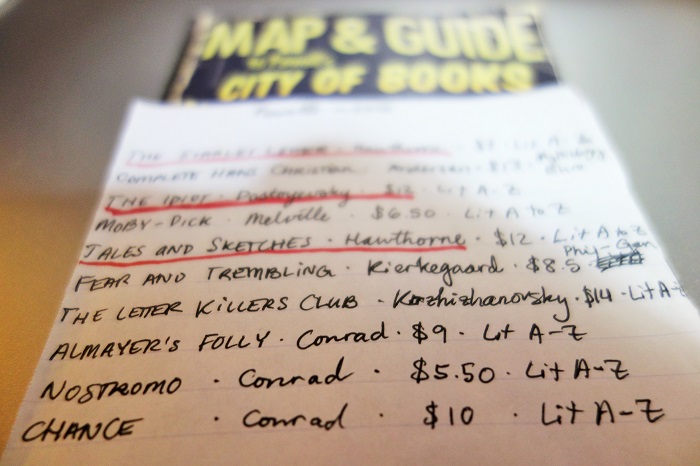 MAP & GUIDE
CITY OF BOOKS
THE SCARLET LETTER · Hawthorne · $7 · Lit A-
COMPLETE HANS CHRISTIAN Andersen · $12 ·
THE IDIOT · Dostoyevsky · $12 · Lit A-Z
MOBY-DICK · Melville · $6.50 · Lit A to Z
TALES AND SKETCHES · Hawthorne · $12 · Lit A to Z
FEAR AND TREMBLING · Kierkegaard · $8.5 Phil-Gen
THE LETTER KILLERS CLUB · Krzhizhanovsky · $14 · Lit A-
ALMAYER'S FOLLY · Conrad · $9 · Lit A-Z
NOSTROMO · Conrad · $5.50 · Lit A-Z
CHANCE · Conrad · $10 · Lit A-Z